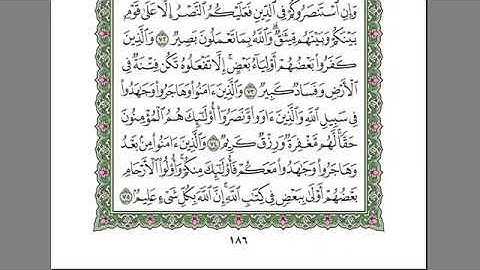 وَإِنِ ٱسْتَنصَرُوكُمْ فِى ٱلدِّينِ فَعَلَيْكُمُ ٱلنَّصْرُ إِلَّا عَلَىٰ قَوْمٍۭ
بَيْنَكُمْ وَبَيْنَهُم مِّيثَٰقٌ ۗ وَٱللَّهُ بِمَا تَعْمَلُونَ بَصِيرٌ ٧٢ وَٱلَّذِينَ
كَفَرُوا۟ بَعْضُهُمْ أَوْلِيَآءُ بَعْضٍ ۚ إِلَّا تَفْعَلُوهُ تَكُن فِتْنَةٌ فِى
ٱلْأَرْضِ وَفَسَادٌ كَبِيرٌ ٧٣ وَٱلَّذِينَ ءَامَنُوا۟ وَهَاجَرُوا۟ وَجَٰهَدُوا۟
فِى سَبِيلِ ٱللَّهِ وَٱلَّذِينَ ءَاوَوا۟ وَّنَصَرُوٓا۟ أُو۟لَٰٓئِكَ هُمُ ٱلْمُؤْمِنُونَ
حَقًّا ۚ لَّهُم مَّغْفِرَةٌ وَرِزْقٌ كَرِيمٌ ٧٤ وَٱلَّذِينَ ءَامَنُوا۟ مِنۢ بَعْدُ
وَهَاجَرُوا۟ وَجَٰهَدُوا۟ مَعَكُمْ فَأُو۟لَٰٓئِكَ مِنكُمْ ۚ وَأُو۟لُوا۟ ٱلْأَرْحَامِ
بَعْضُهُمْ أَوْلَىٰ بِبَعْضٍ فِى كِتَٰبِ ٱللَّهِ ۗ إِنَّ ٱللَّهَ بِكُلِّ شَىْءٍ عَلِيمٌۢ ٧٥
١٨٦